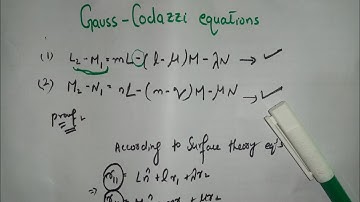 Gauss-Codazzi equations
(1) L₂-M₁ = mL-(l-μ)M-λN → ✓
(2) M₂-N₁ = nL-(m-ν)M-μN → ✓
proof,
According to Surface theory eqⁿs
⇒ r₁₁ = Ln̂ + lr₁ + λr₂